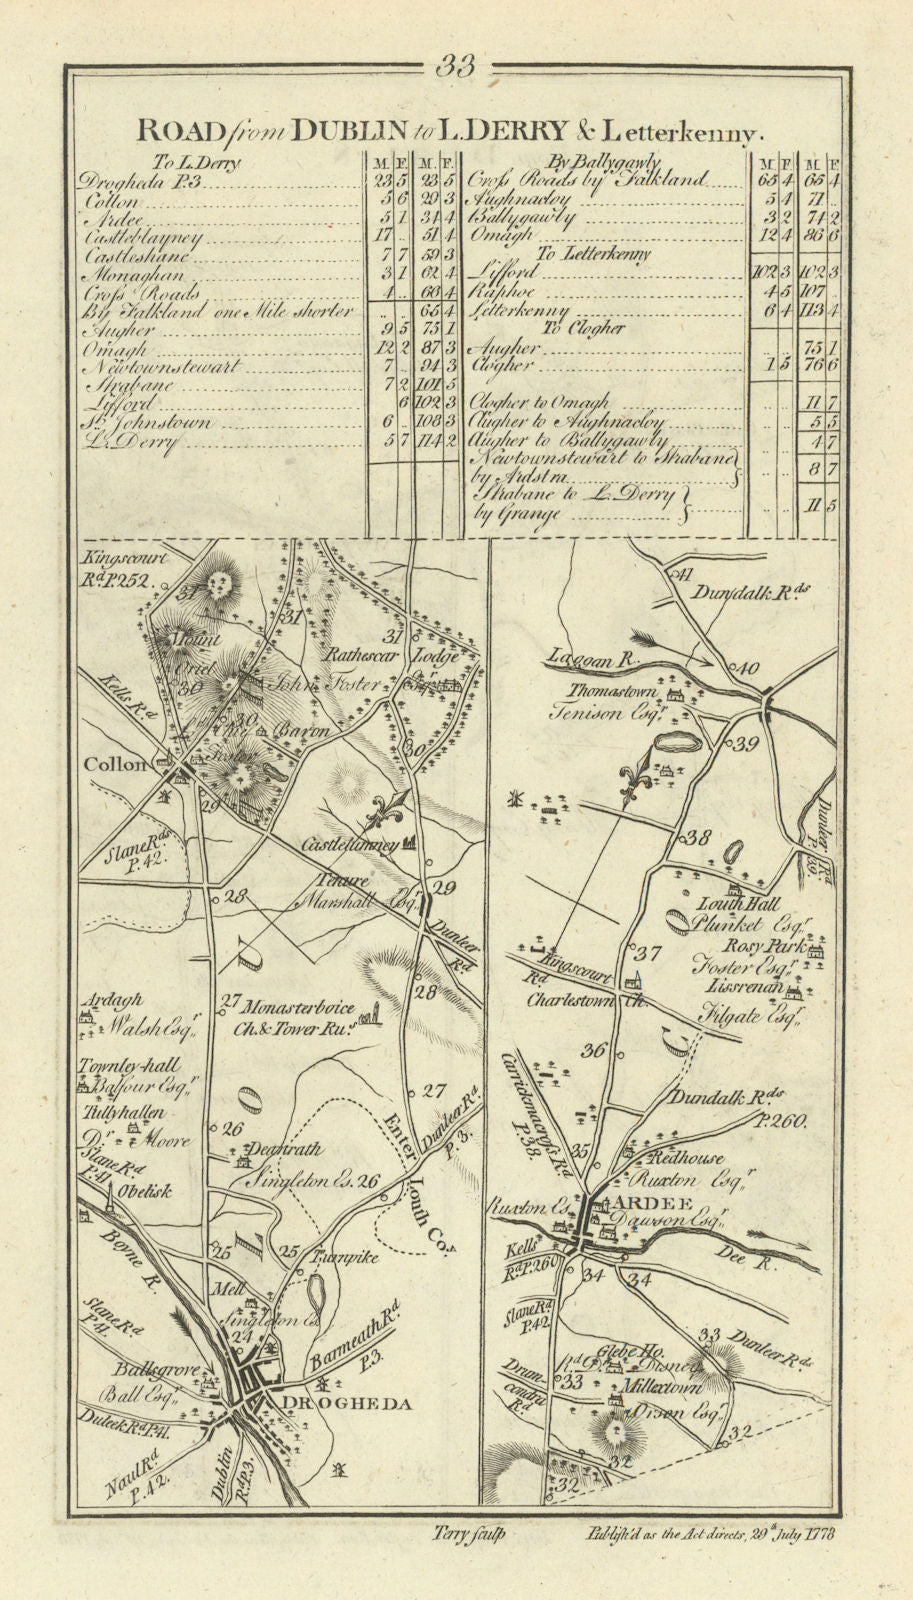 33
ROAD from DUBLIN to L.DERRY & Letterkenny.
To L.Derry M. F. M. F.
Drogheda P.3 23 5 23 5
Collon 5 6 29 3
Ardee 5 1 34 4
Castleblayney 17 .. 51 4
Castleshane 7 7 59 3
Monaghan 3 1 62 4
Cross Roads 4 .. 66 4
By Falkland one Mile shorter .. .. 65 4
Augher 9 5 75 1
Omagh 12 2 87 3
Newtownstewart 7 .. 94 3
Strabane 7 2 101 5
Lifford 6 102 3
St. Johnstown 6 .. 108 3
L. Derry 5 7 114 2
By Ballygawly M. F. M. F.
Cross Roads by Falkland 65 4 65 4
Aughnacloy 5 4 71 ..
Ballygawly 3 2 74 2
Omagh 12 4 86 6
To Letterkenny
Lifford 102 3 102 3
Raphoe 4 5 107 ..
Letterkenny 6 4 113 4
To Clogher
Augher 75 1
Clogher 1 5 76 6
Clogher to Omagh .. .. 11 7
Augher to Aughnacloy .. .. 5 5
Augher to Ballygawly .. .. 4 7
Newtownstewart to Strabane
by Ardstra .. .. 8 7
Strabane to L. Derry
by Grange .. .. 11 5
Kingscourt
Rd. P.252.
31
31
31
Mount
Oriel
Rathescar Lodge
John Foster Esqr.
30
30
Kells Rd
Chief Baron
Foster
30
Collon
29
Slane Rds
P.42.
Castlelumney
28
Tenure
Marshall Esqr.
29
Dunleer
Rd
28
Ardagh
Walsh Esqr.
27
Monasterboice
Ch. & Tower Rus.
L O U
Townley-hall
Balfour Esqr.
Tullyhallen
Dr. Moore
27
26
Enter
Louth Coy.
Dunleer Rd
P.3.
Slane Rd
P.41
Obelisk
Deanrath
Singleton Es.
26
Boyne R.
25
25
Turnpike
Mell
Singleton Es.
24
Slane Rd
P.41.
Barmeath Rd
P.3.
Ballsgrove
Ball Esqr.
DROGHEDA
Duleek Rd P.41.
Naul Rd
P.42.
Dublin
Rd P.3.
41
Dundalk Rds
Lagan R.
40
Thomastown
Tenison Esqr.
39
38
Dunleer Rd
P.39.
Louth Hall
Plunket Esqr.
37
Rosy Park
Foster Esqr.
Kingscourt
Rd
Lissrenan
Filgate Esqr.
Charlestown Ch.
C
36
Carrickmacross Rd
P.38.
Dundalk Rds
P.260.
35
Redhouse
Ruxton Esqr.
Ruxton Es.
ARDEE
Dawson Esqr.
Kells
Rd P.260
Dee R.
34
34
Slane Rd
P.42
33
Dunleer Rds
Glebe Ho.
Rd. Dr. Disney
Drum-
condra
Rd
33
Millextown
Orson Esqr.
32
32
32
Terry sculp
Publish'd as the Act directs, 29th July 1778